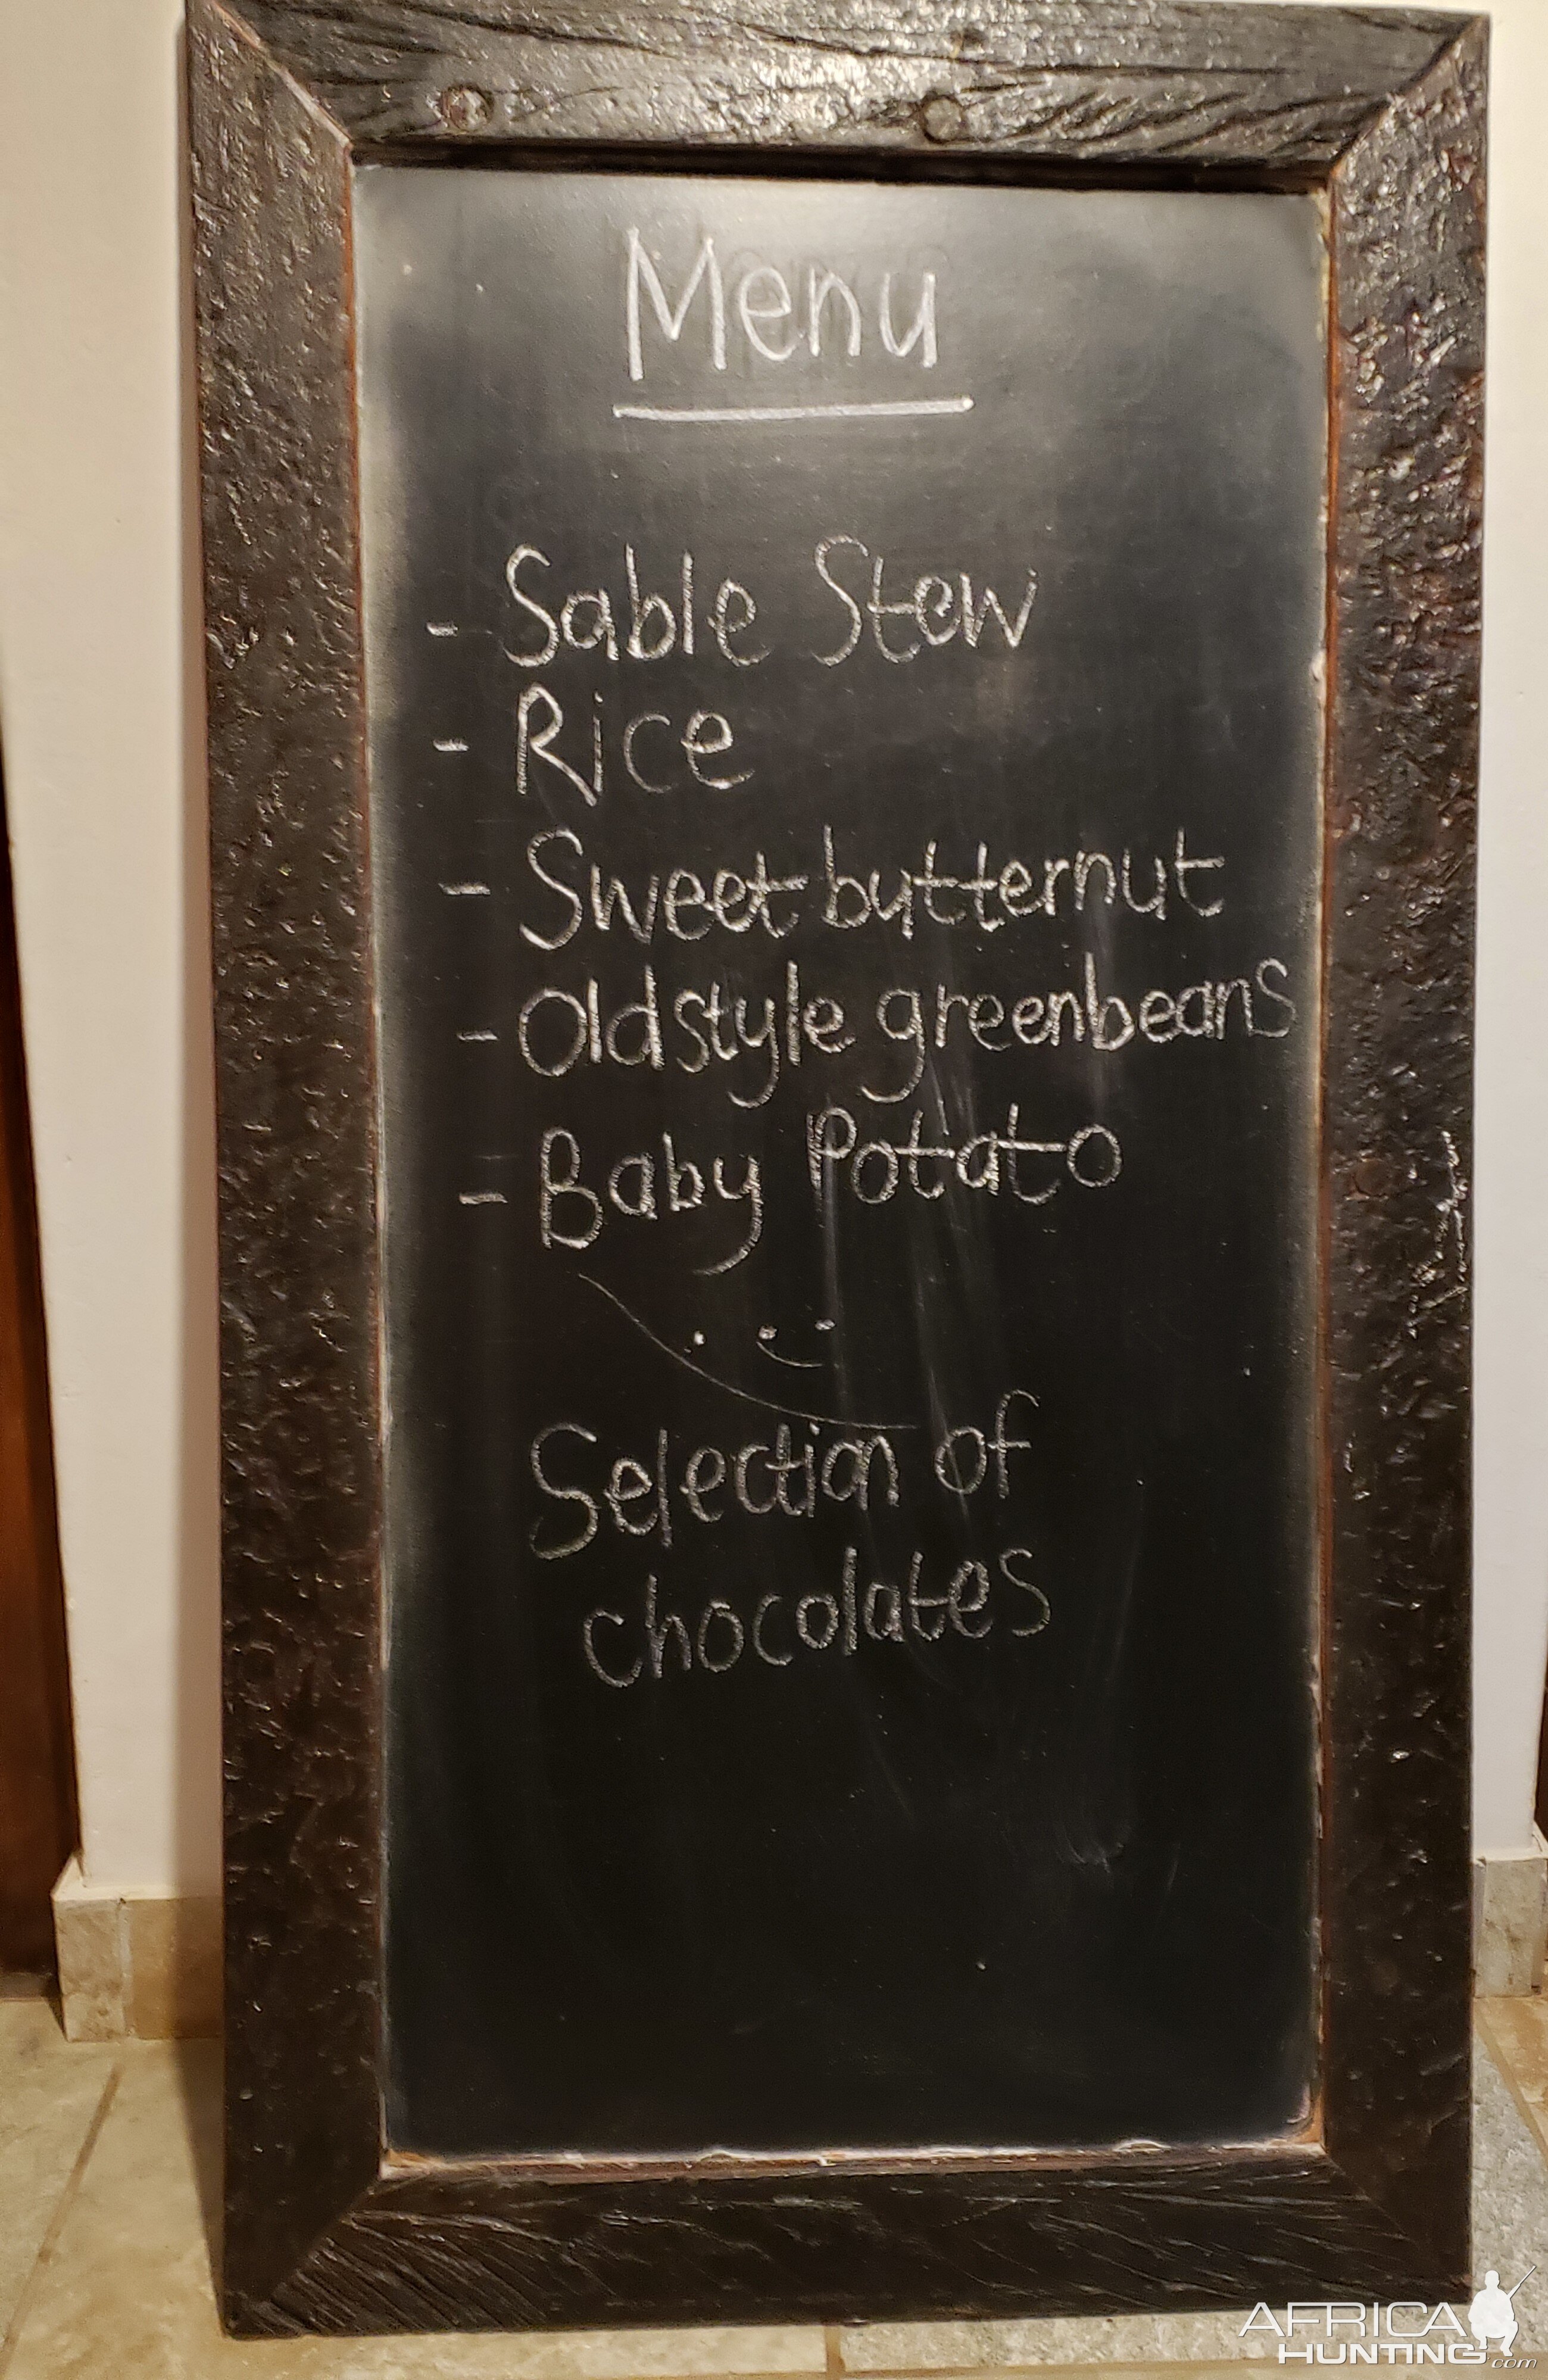 Menu
- Sable Stew
- Rice
- Sweet butternut
- Oldstyle greenbeans
- Baby Potato
Selection of
chocolates
AFRICA
HUNTING.com